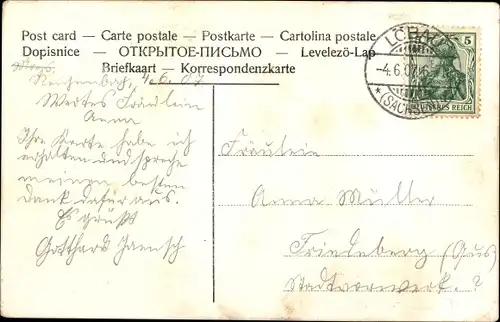 Post card — Carte postale — Postkarte — Cartolina postale
Dopisnice — ОТКРЫТОЕ-ПИСЬМО — Levelező-Lap
Briefkaart — Korrespondenzkarte
LÖBAU
-4.6.07.
*(SACHSEN)
5
DEUTSCHES REICH
Reichenbach, 4.6.07
Wertes Fräulein
Anna
Ihre Karte habe ich
erhalten und spreche
meinen besten
Dank dafür aus.
Es grüßt
Gotthard Jaensch
Fräulein
Anna Müller
Friedeberg (Queis)
Stadtvorwerk.